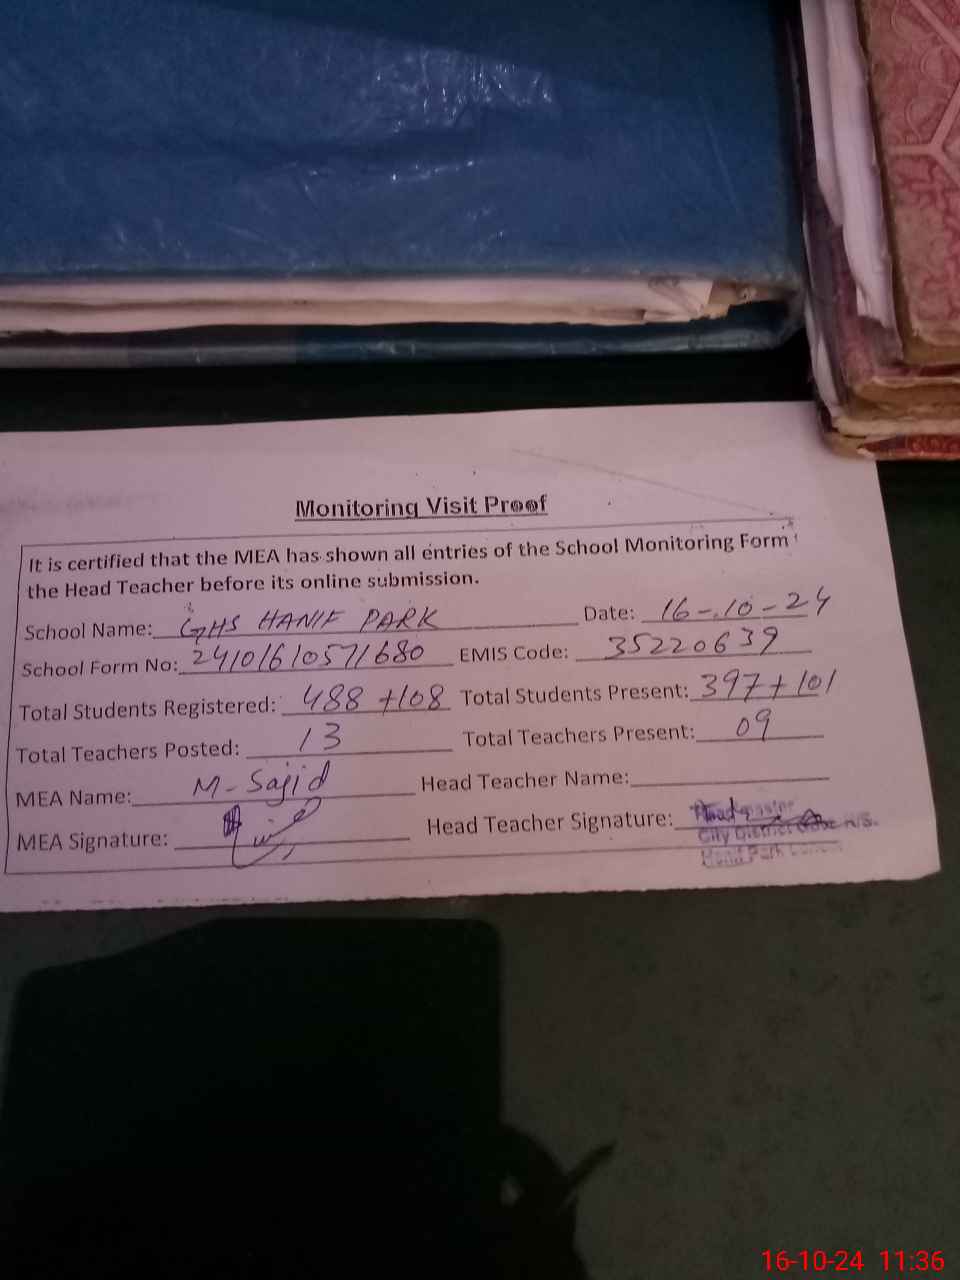 Monitoring Visit Proof
It is certified that the MEA has shown all entries of the School Monitoring Form
the Head Teacher before its online submission.
School Name: GHS HANIF PARK Date: 16-10-24
School Form No: 24101610571680 EMIS Code: 35220639
Total Students Registered: 488 +108 Total Students Present: 397+101
Total Teachers Posted: 13 Total Teachers Present: 09
MEA Name: M-Sajid Head Teacher Name:
MEA Signature: Head Teacher Signature:
Headmaster
City District Govt. H/S.
Hanif Park
16-10-24 11:36